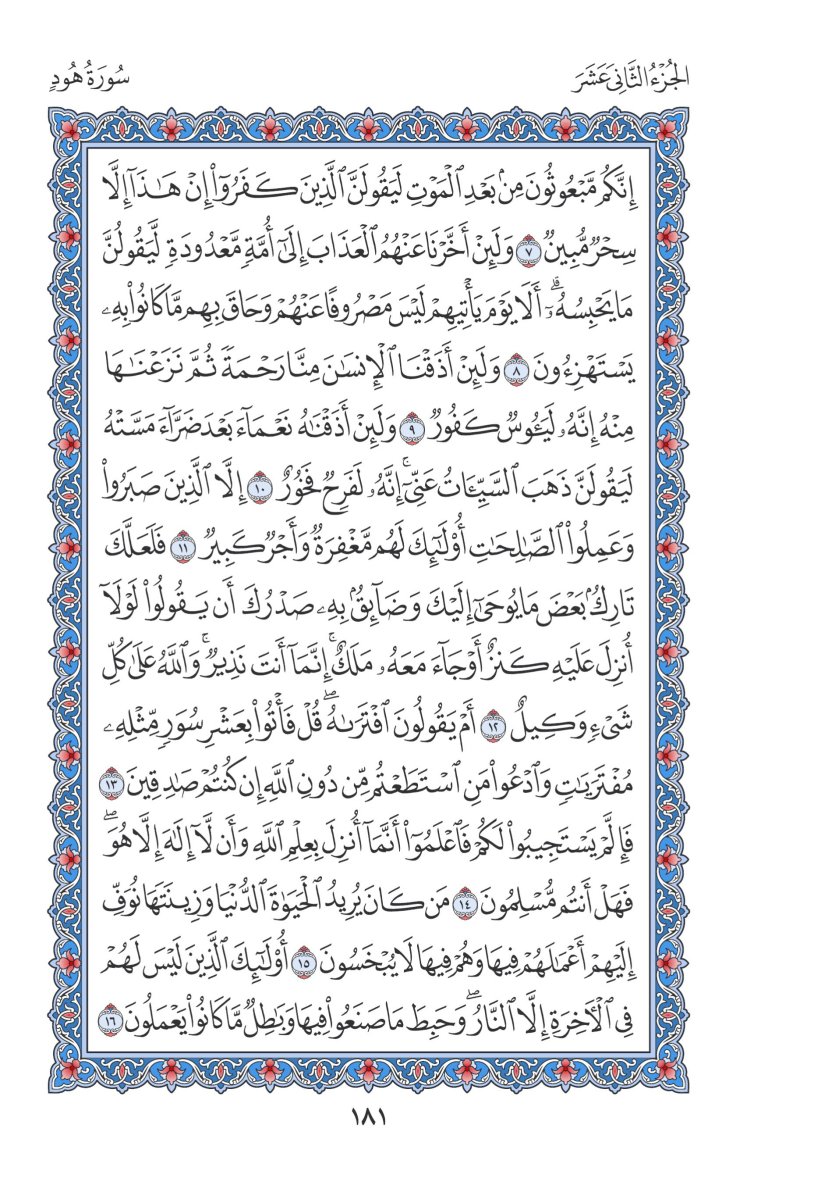 الجُزْءُ الثَّانِيَ عَشَرَ
سُورَةُ هُودٍ
إِنَّكُم مَّبۡعُوثُونَ مِنۢ بَعۡدِ ٱلۡمَوۡتِ لَيَقُولَنَّ ٱلَّذِينَ كَفَرُوٓاْ إِنۡ هَٰذَآ إِلَّا
سِحۡرٞ مُّبِينٞ ٧ وَلَئِنۡ أَخَّرۡنَا عَنۡهُمُ ٱلۡعَذَابَ إِلَىٰٓ أُمَّةٖ مَّعۡدُودَةٖ لَّيَقُولُنَّ
مَا يَحۡبِسُهُۥٓۗ أَلَا يَوۡمَ يَأۡتِيهِمۡ لَيۡسَ مَصۡرُوفًا عَنۡهُمۡ وَحَاقَ بِهِم مَّا كَانُواْ بِهِۦ
يَسۡتَهۡزِءُونَ ٨ وَلَئِنۡ أَذَقۡنَا ٱلۡإِنسَٰنَ مِنَّا رَحۡمَةٗ ثُمَّ نَزَعۡنَٰهَا
مِنۡهُ إِنَّهُۥ لَيَـُٔوسٞ كَفُورٞ ٩ وَلَئِنۡ أَذَقۡنَٰهُ نَعۡمَآءَ بَعۡدَ ضَرَّآءَ مَسَّتۡهُ
لَيَقُولَنَّ ذَهَبَ ٱلسَّيِّـَٔاتُ عَنِّيٓۚ إِنَّهُۥ لَفَرِحٞ فَخُورٌ ١٠ إِلَّا ٱلَّذِينَ صَبَرُواْ
وَعَمِلُواْ ٱلصَّٰلِحَٰتِ أُوْلَٰٓئِكَ لَهُم مَّغۡفِرَةٞ وَأَجۡرٞ كَبِيرٞ ١١ فَلَعَلَّكَ
تَارِكُۢ بَعۡضَ مَا يُوحَىٰٓ إِلَيۡكَ وَضَآئِقُۢ بِهِۦ صَدۡرُكَ أَن يَقُولُواْ لَوۡلَآ
أُنزِلَ عَلَيۡهِ كَنزٌ أَوۡ جَآءَ مَعَهُۥ مَلَكٌۚ إِنَّمَآ أَنتَ نَذِيرٞۚ وَٱللَّهُ عَلَىٰ كُلِّ
شَيۡءٖ وَكِيلٌ ١٢ أَمۡ يَقُولُونَ ٱفۡتَرَىٰهُۖ قُلۡ فَأۡتُواْ بِعَشۡرِ سُوَرٖ مِّثۡلِهِۦ
مُفۡتَرَيَٰتٖ وَٱدۡعُواْ مَنِ ٱسۡتَطَعۡتُم مِّن دُونِ ٱللَّهِ إِن كُنتُمۡ صَٰدِقِينَ ١٣
فَإِلَّمۡ يَسۡتَجِيبُواْ لَكُمۡ فَٱعۡلَمُوٓاْ أَنَّمَآ أُنزِلَ بِعِلۡمِ ٱللَّهِ وَأَن لَّآ إِلَٰهَ إِلَّا هُوَۖ
فَهَلۡ أَنتُم مُّسۡلِمُونَ ١٤ مَن كَانَ يُرِيدُ ٱلۡحَيَوٰةَ ٱلدُّنۡيَا وَزِينَتَهَا نُوَفِّ
إِلَيۡهِمۡ أَعۡمَٰلَهُمۡ فِيهَا وَهُمۡ فِيهَا لَا يُبۡخَسُونَ ١٥ أُوْلَٰٓئِكَ ٱلَّذِينَ لَيۡسَ لَهُمۡ
فِي ٱلۡأٓخِرَةِ إِلَّا ٱلنَّارُۖ وَحَبِطَ مَا صَنَعُواْ فِيهَا وَبَٰطِلٞ مَّا كَانُواْ يَعۡمَلُونَ ١٦
١٨١